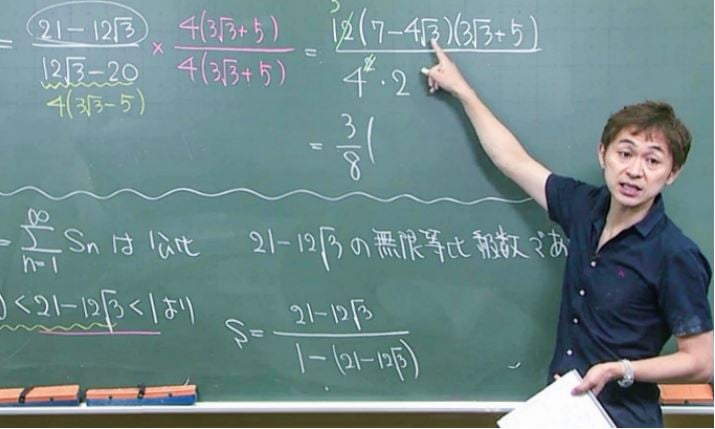 = (21-12√3)/(12√3-20) × 4(3√3+5)/4(3√3+5) = 12(7-4√3)(3√3+5)/4²・2
3
4(3√3-5)
= 3/8 (
= ∞Σn=1 Sn は 公比 21-12√3の無限等比級数であ
) < 21-12√3 < 1 より
S = (21-12√3)/(1-(21-12√3))